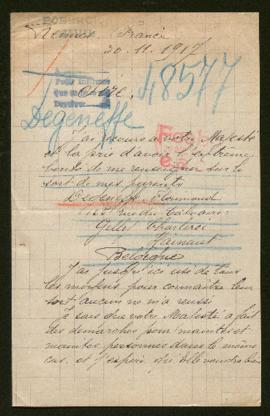 France
20.11.1917
48577
Degeneffe
J'ai recours à votre Majesté
et la prie d'avoir l'extrême
bonté de me renseigner sur le
sort de mes parents
Degeneffe
rue du
Gilly Charleroi
Hainaut
Belgique
J'ai jusqu'ici usé de tous
les moyens pour connaitre leur
sort aucun ne m'a reussi
Je sais que votre Majesté a fait
des démarches pour maintes et
maintes personnes dans le même
cas, et j'espère qu'Elle voudra bien